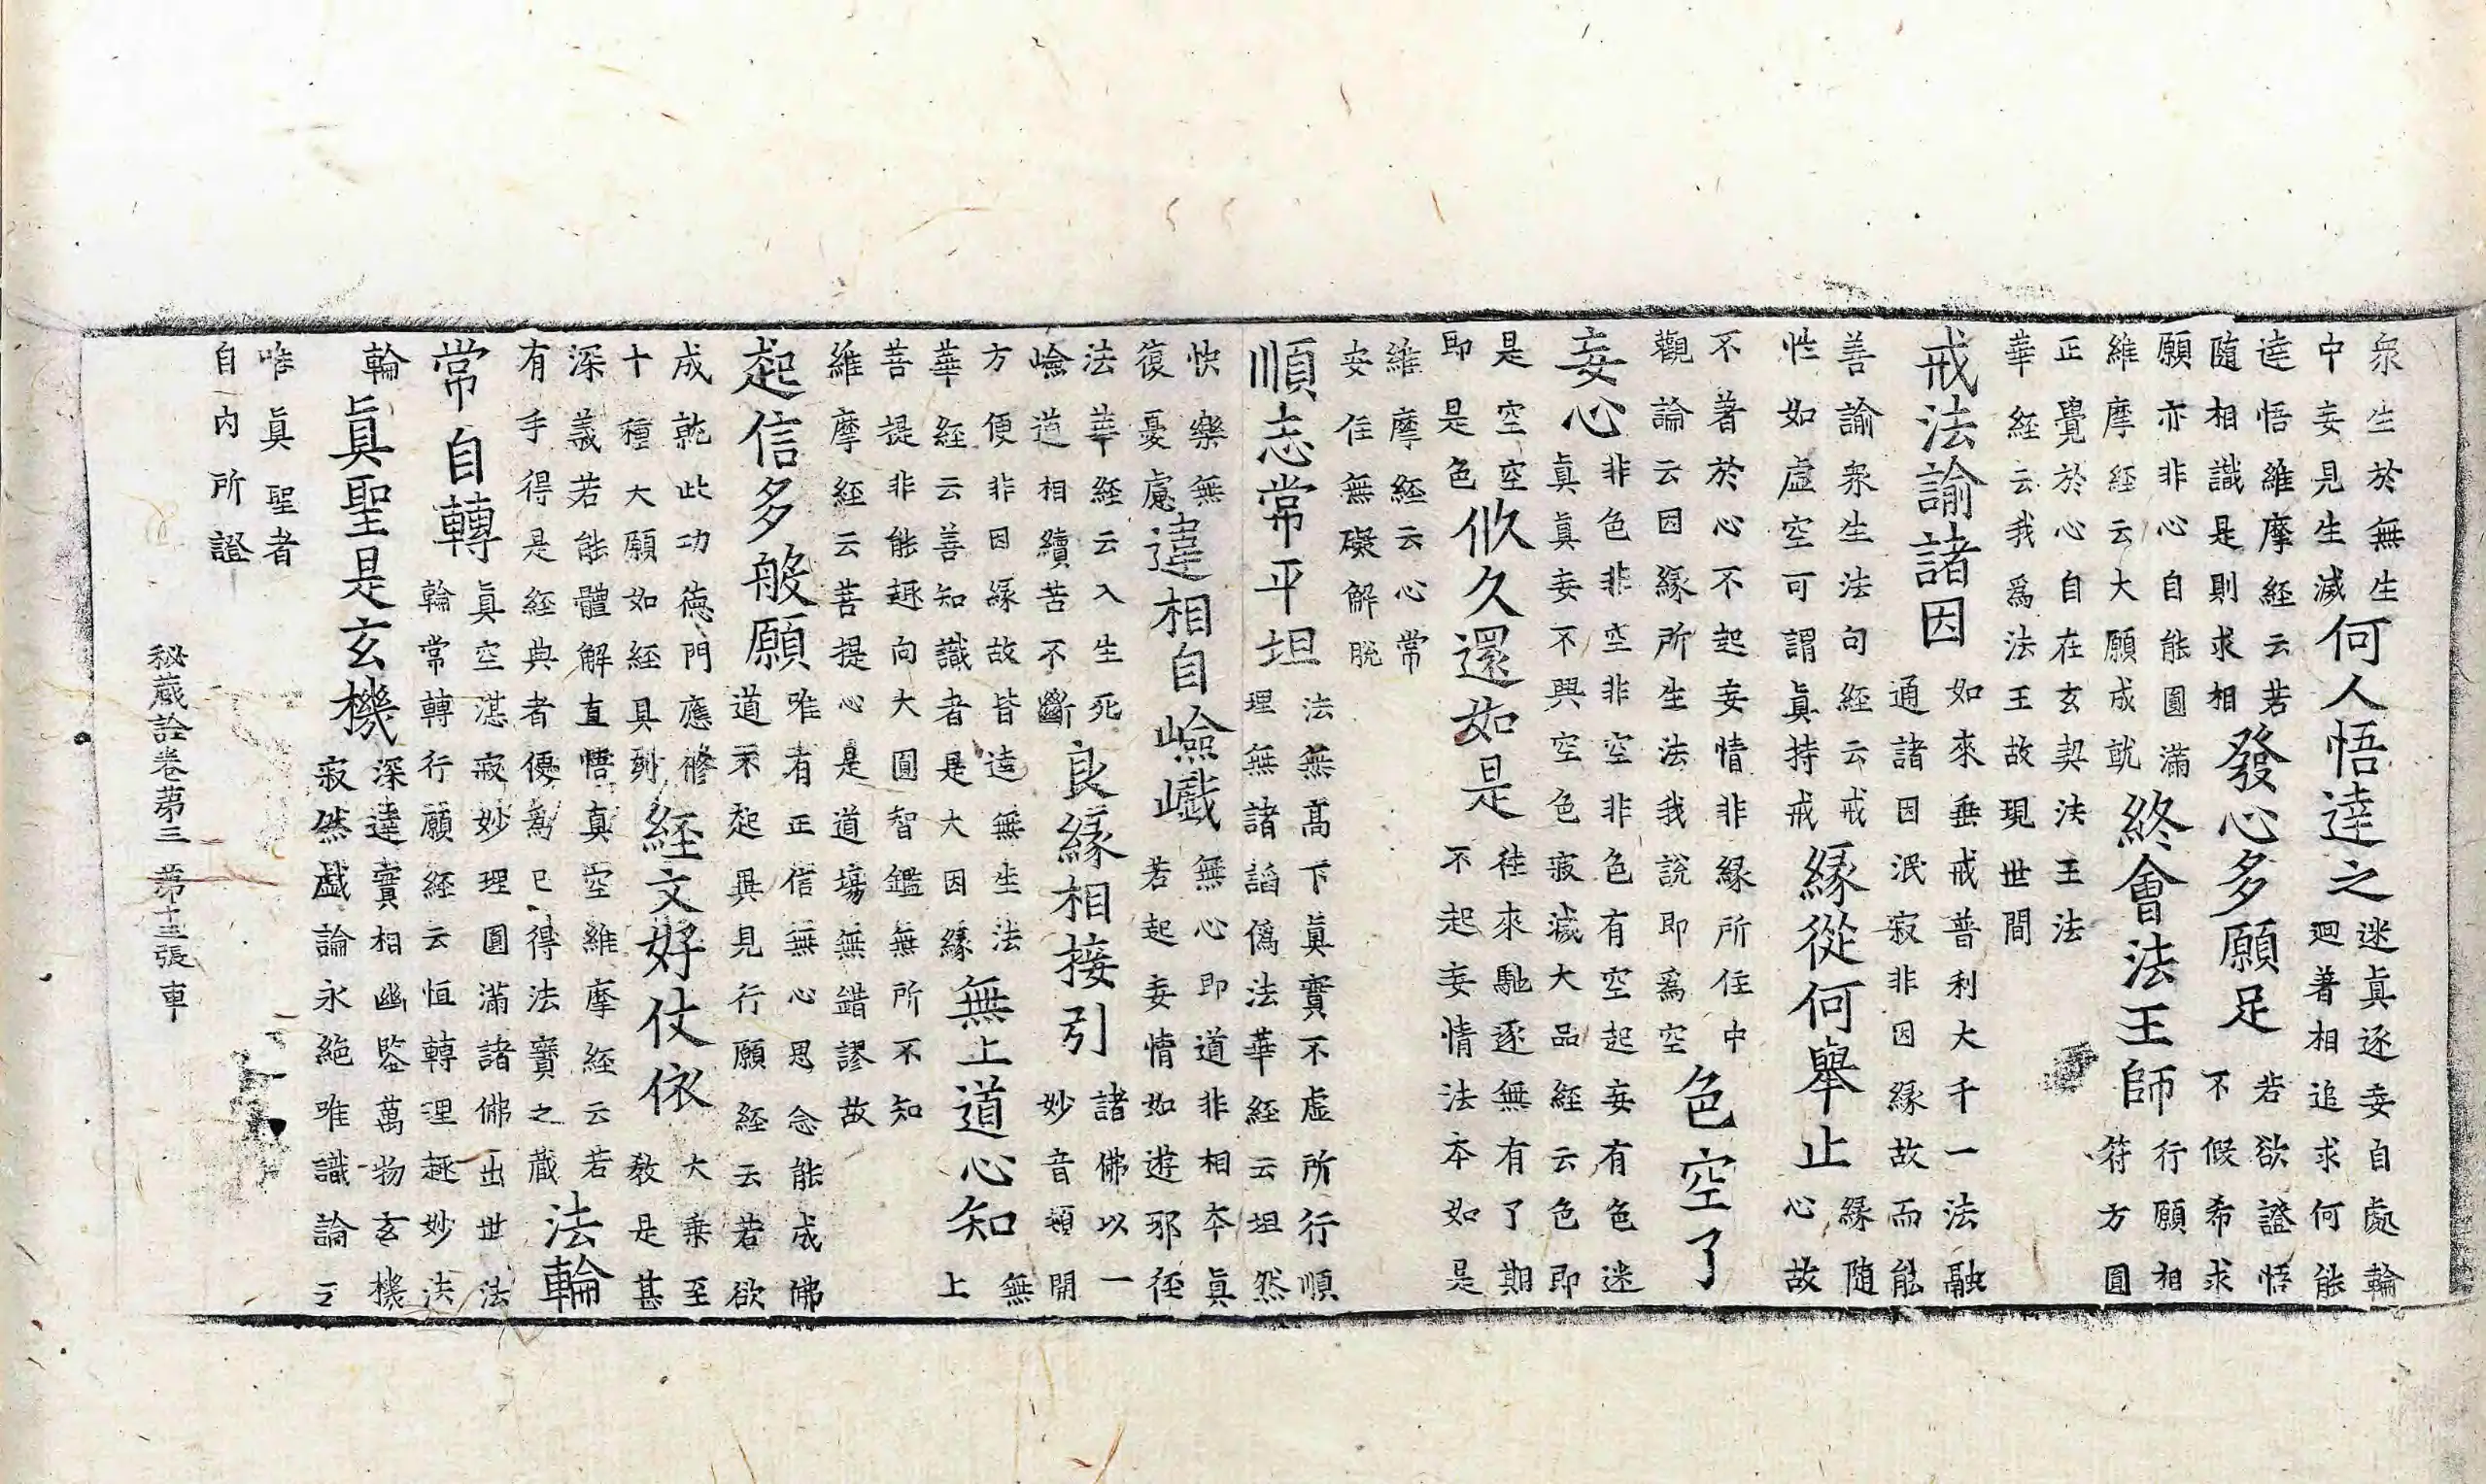 衆生於無生中妄見生滅何人悟達之迷眞逐妄自處輪迴著相追求何能
達悟維摩經云若隨相識是則求相發心多願足若欲證悟不候希求
願亦非心自能圓滿維摩經云大願成就終會法王師行願相符方圓
正覺於心自在玄契法王法華經云我爲法王故現世間
戒法諭諸因如來垂戒普利大千一法融通諸因泯寂非因緣故而能
善諭衆生法句經云戒性如虛空可謂眞持戒緣從何舉止緣隨心故
不著於心不起妄情非緣所住中觀論云因緣所生法我說即爲空色空了
妄心非色非空非空非色有空起妄有色迷眞眞妄不興空色寂滅大品經云色即
是空空即是色攸久還如是徃來馳逐無有了期不起妄情法本如是
維摩經云心常安住無礙解脫
順志常平坦法無高下眞實不虛所行順理無諸謟僞法華經云坦然
快樂無復憂慮違相自嶮巇無心即道非相本眞若起妄情如遊邪徑
法華經云入生死嶮道相續苦不斷良緣相接引諸佛以一妙音頓開
方便非因緣故皆達無生法華經云善知識者是大因緣無上道心知無上
菩提非能趣向大圓智鑑無所不知維摩經云菩提心是道場無錯謬故
起信多般願唯有正信無心思念能成佛道不起異見行願經云若欲
成就此功德門應修十種大願如經具列經文好仗依大乘至教是甚
深義若能體解直悟眞空維摩經云若有手得是經典者便爲已得法寶之藏法輪
常自轉眞空湛寂妙理圓滿諸佛出世法輪常轉行願經云恒轉理趣妙法
輪眞聖是玄機深達實相幽鑒萬物玄機寂然戲論永絕唯識論云
唯眞聖者自內所證
秘藏詮卷第三 第十三張 車